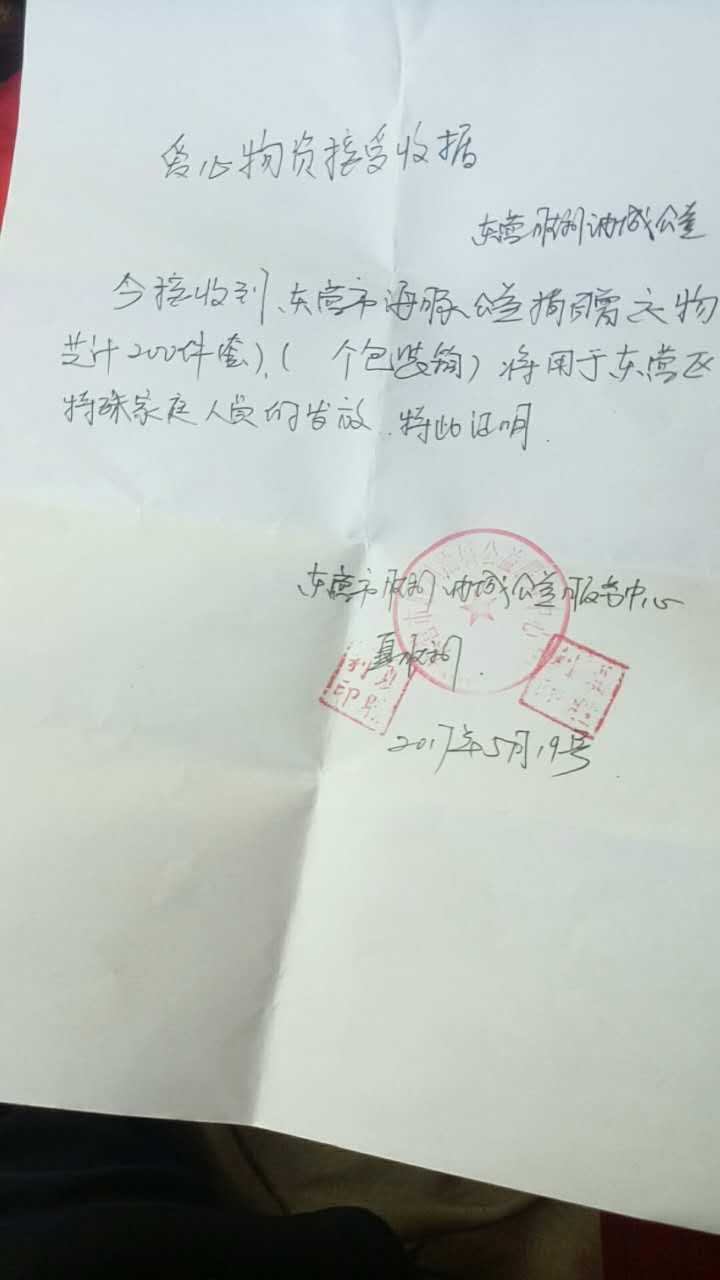 爱心物资接受收据
东营胜利油城公益
今接收到、东营市海豚公益捐赠衣物
共计200件(套)、( 个包装箱)将用于东营区
特殊家庭人员的发放.特此证明.
东营市胜利油城公益服务中心
夏胜利.
2017年5月19号